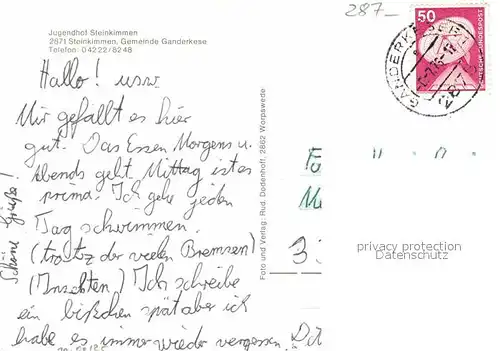 Jugendhof Steinkimmen
2871 Steinkimmen, Gemeinde Ganderkese
Telefon: 04222/8248
Hallo! usw.
Mir gefällt es hier
gut. Das Essen Morgens u.
Abends geht Mittag ist es
prima. Ich gehe jeden
Tag schwimmen.
(trotz der vielen Bremsen)
(Insekten) Ich schreibe
ein bißchen spät aber ich
habe es immer wieder vergessen.
Schöne Grüße!
Foto und Verlag: Rud. Dodenhoff, 2862 Worpswede
287-
50
DEUTSCHE BUNDESPOST
GANDERKESEE
privacy protection
Datenschutz